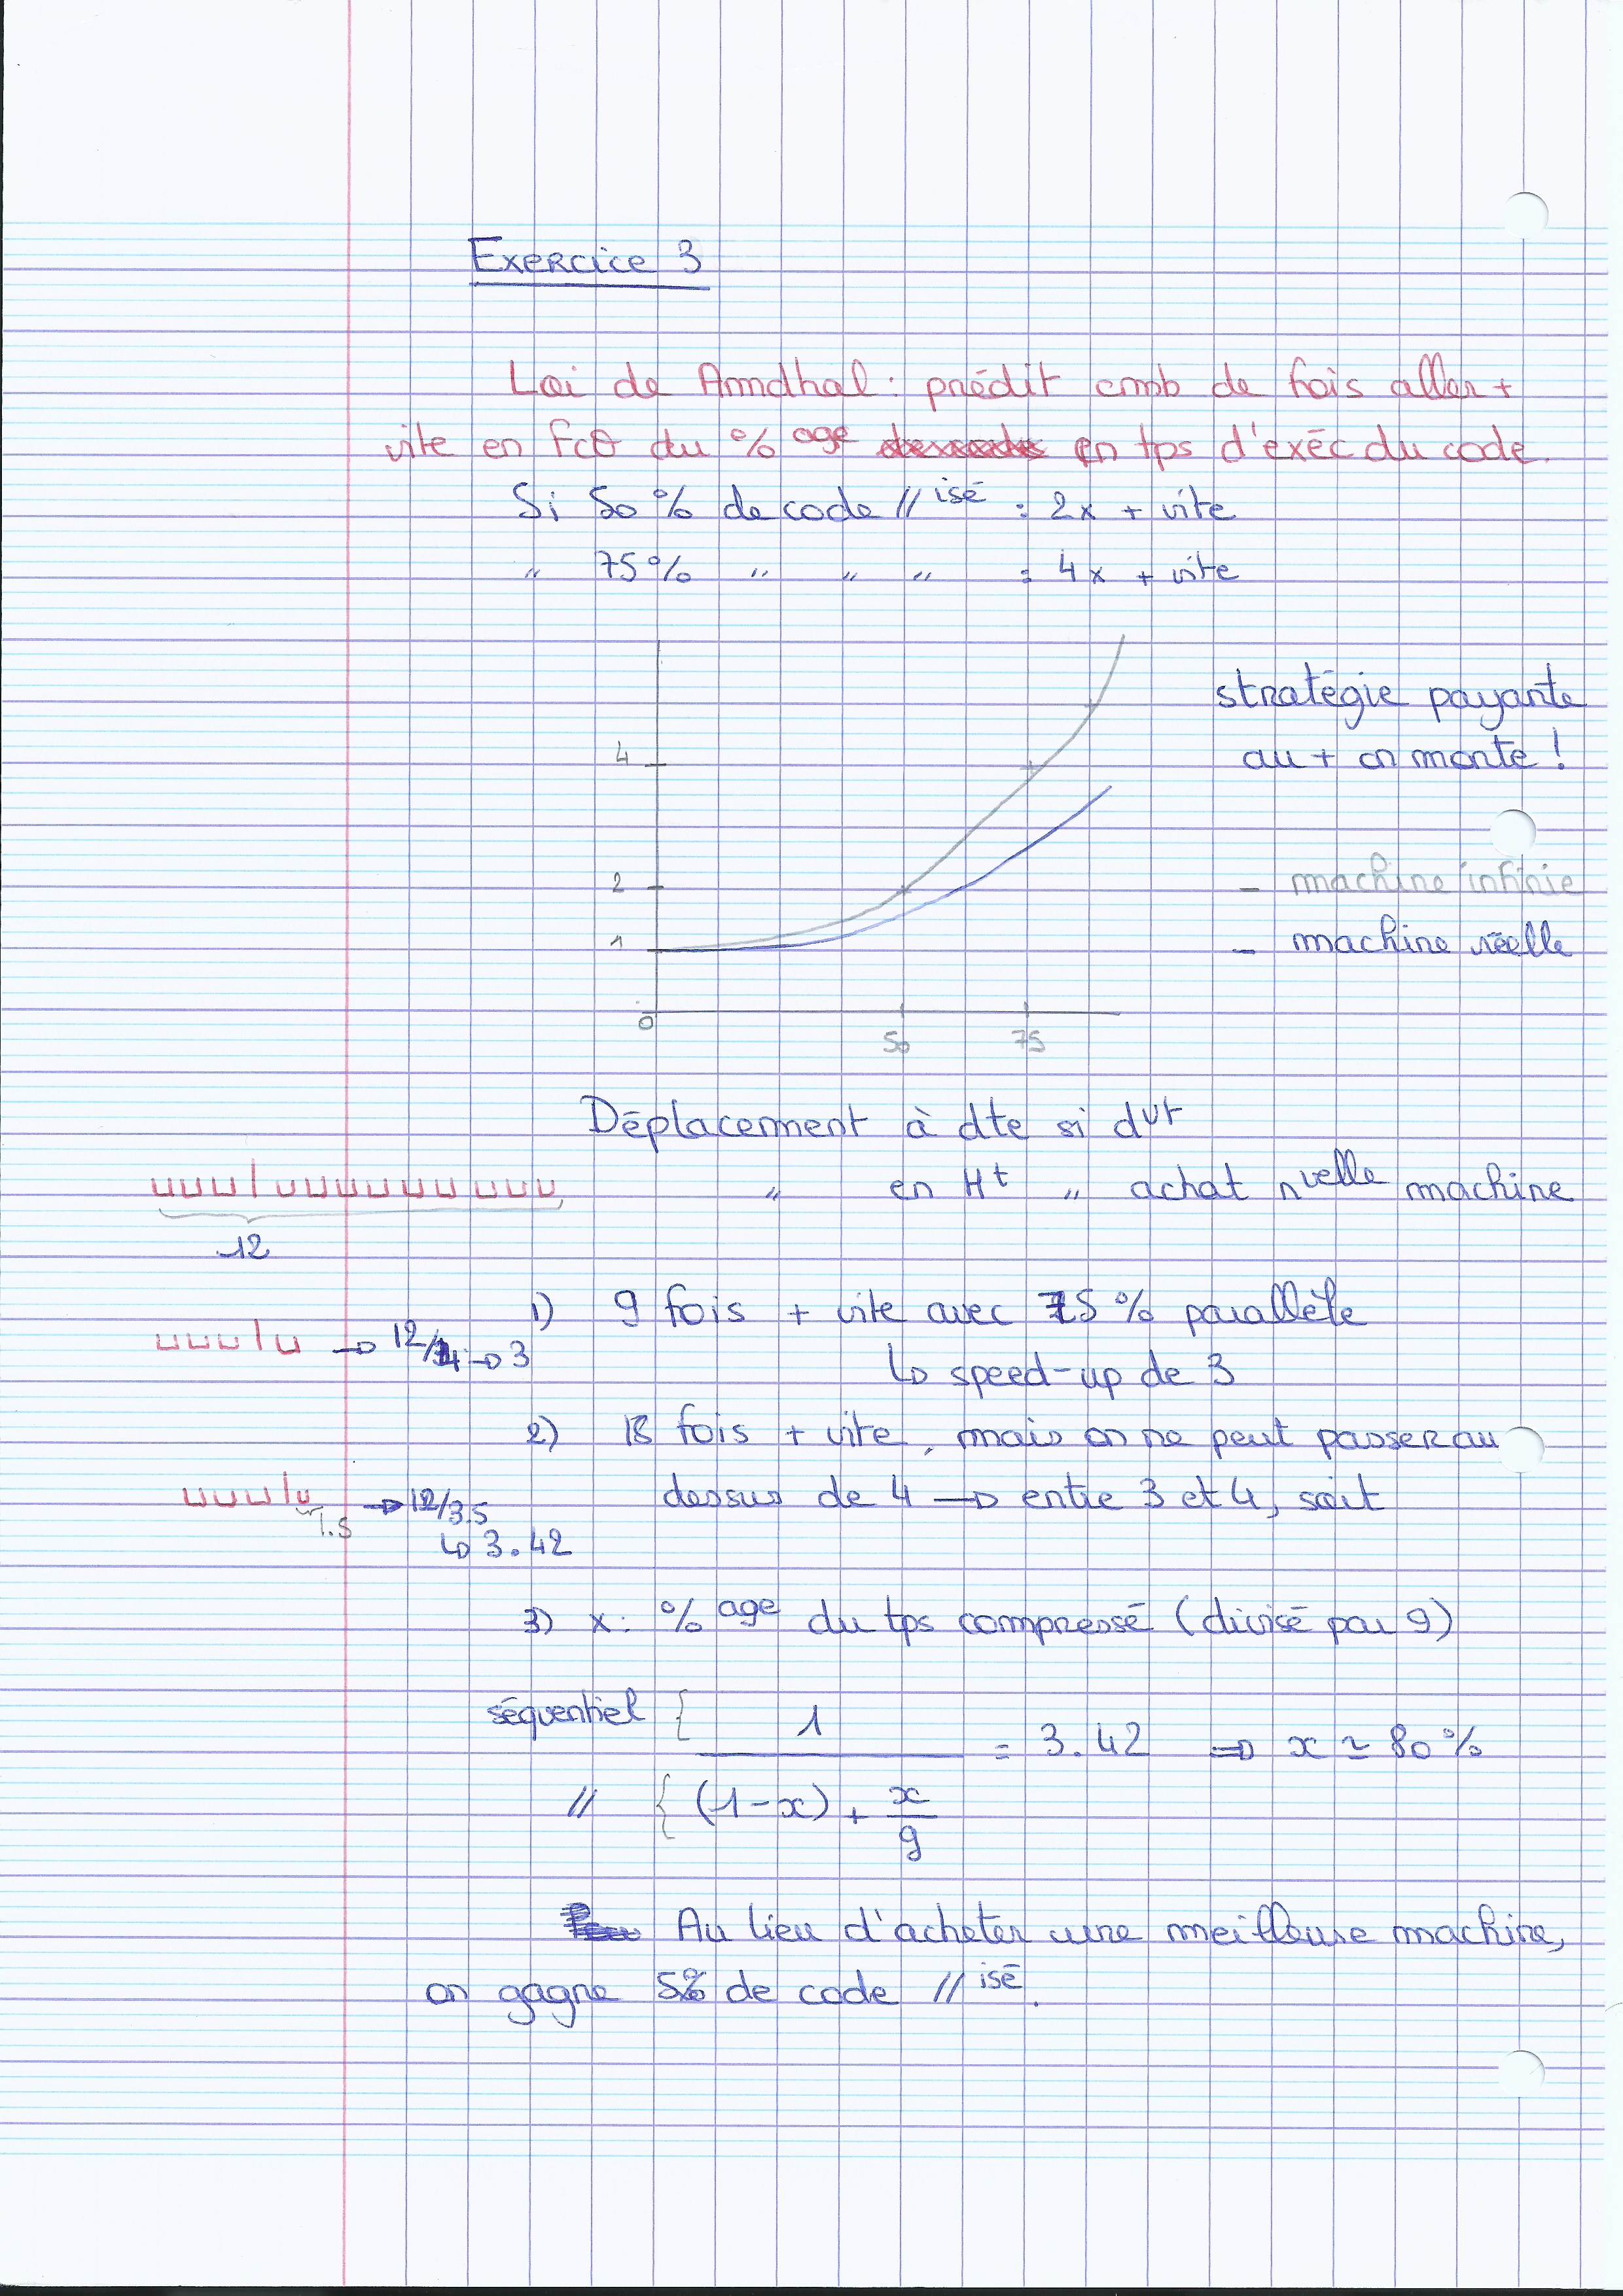 Exercice 3
Loi de Amdhal : prédit cmb de fois aller +
vite en fcθ du % age en tps d'exéc du code.
Si 50 % de code // isé = 2x + vite
" 75 % " " " = 4x + vite
stratégie payante
au + on monte !
4
2
1
0
50
75
- machine infinie
- machine réelle
Déplacement à dte si dvt
" en Ht " achat nvelle machine
12
1) 9 fois + vite avec 75 % parallèle
→ 12/4 → 3
↳ speed-up de 3
2) 18 fois + vite, mais on ne peut passer au
dessus de 4 → entre 3 et 4, soit
→ 12/3.5
↳ 3.42
3) x : % age du tps compressé (divisé par 9)
séquentiel { 1
= 3.42 ⇒ x ≃ 80 %
// { (1-x) + x/9
Au lieu d'acheter une meilleure machine,
on gagne 5% de code // isé.